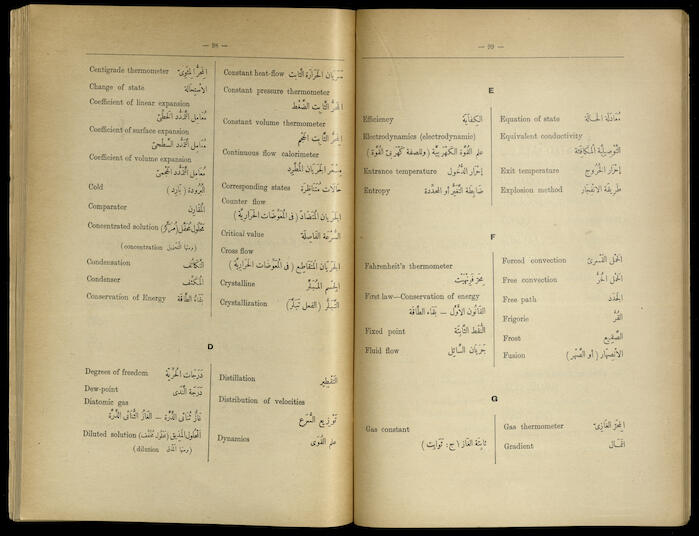 — 98 —
Centigrade thermometer المِحَرّ المِئَوِىّ
Change of state الاسْتِحَالَة
Coefficient of linear expansion
مُعَامِل التَّمَدُّد الخَطِّىّ
Coefficient of surface expansion
مُعَامِل التَّمَدُّد السَّطْحِىّ
Coefficient of volume expansion
مُعَامِل التَّمَدُّد الحَجْمِىّ
Cold البُرُودَة ( بَارِد )
Comparator المُقَارِن
Concentrated solution مَحْلُول
(concentration
Condensation التَّكَاثُف
Condenser المُكَثِّف
Conservation of Energy بَقَاءُ الطَّاقَة
Constant heat-flow جَرَيَان الحَرَارَة الثَّابِت
Constant pressure thermometer
المِحَرّ الثَّابِت الضَّغْط
Constant volume thermometer
المِحَرّ الثَّابِت الحَجْم
Continuous flow calorimeter
مِسْعَر الجَرَيَان المُطَّرِد
Corresponding states حَالَات مُتَنَاظِرَة
Counter flow
الجَرَيَان المُتَضَادّ ( فى المُعَوِّضَات الحَرَارِيَّة )
Critical value السُّرْعَة الفَاصِلَة
Cross flow
الجَرَيَان المُتَقَاطِع ( فى المُعَوِّضَات الحَرَارِيَّة )
Crystalline الجِسْم المُتَبَلِّر
Crystallization التَّبَلُّر ( الفعل تَبَلَّرَ )
D
Degrees of freedom دَرَجَات الحُرِّيَّة
Dew-point دَرَجَة النَّدَى
Diatomic gas
غَاز ثُنَائى الذَّرَّة — الغَاز الثُّنَائى الذَّرَّة
Diluted solution
(dilution
Distillation التَّقْطِير
Distribution of velocities
تَوْزِيع السُّرَع
Dynamics عِلم القُوَى
— 99 —
E
Efficiency الكِفَايَة
Electrodynamics (electrodynamic)
علم القُوَّة الكَهْرَبِيَّة ( وللصفة كَهْرَبِىّ القُوَّة )
Entrance temperature إحْرَار الدُّخُول
Entropy ضَابِطَة التَّغَيُّر أو المحدّدة
Equation of state مُعَادَلَة الحَالَة
Equivalent conductivity
التَّوْصِيلِيَّة المُكَافِئَة
Exit temperature إحْرَار الخُرُوج
Explosion method طَرِيقَة الانْفِجَار
F
Fahrenheit's thermometer
مِحَرّ فَرِنْهَيْت
First law—Conservation of energy
القَانُون الأوَّل — بَقَاء الطَّاقَة
Fixed point النُّقَط الثَّابِتَة
Fluid flow جَرَيَان السَّائِل
Forced convection الحَمْل القَسْرِىّ
Free convection الحَمْل الحُرّ
Free path
Frigorie القُرّ
Frost الصَّقِيع
Fusion الانْصِهَار ( أو الصَّهْر )
G
Gas constant
ثَابِتَة الغَاز ( ج : ثَوَابِت )
Gas thermometer المِحَرّ الغَازِىّ
Gradient المَمَال